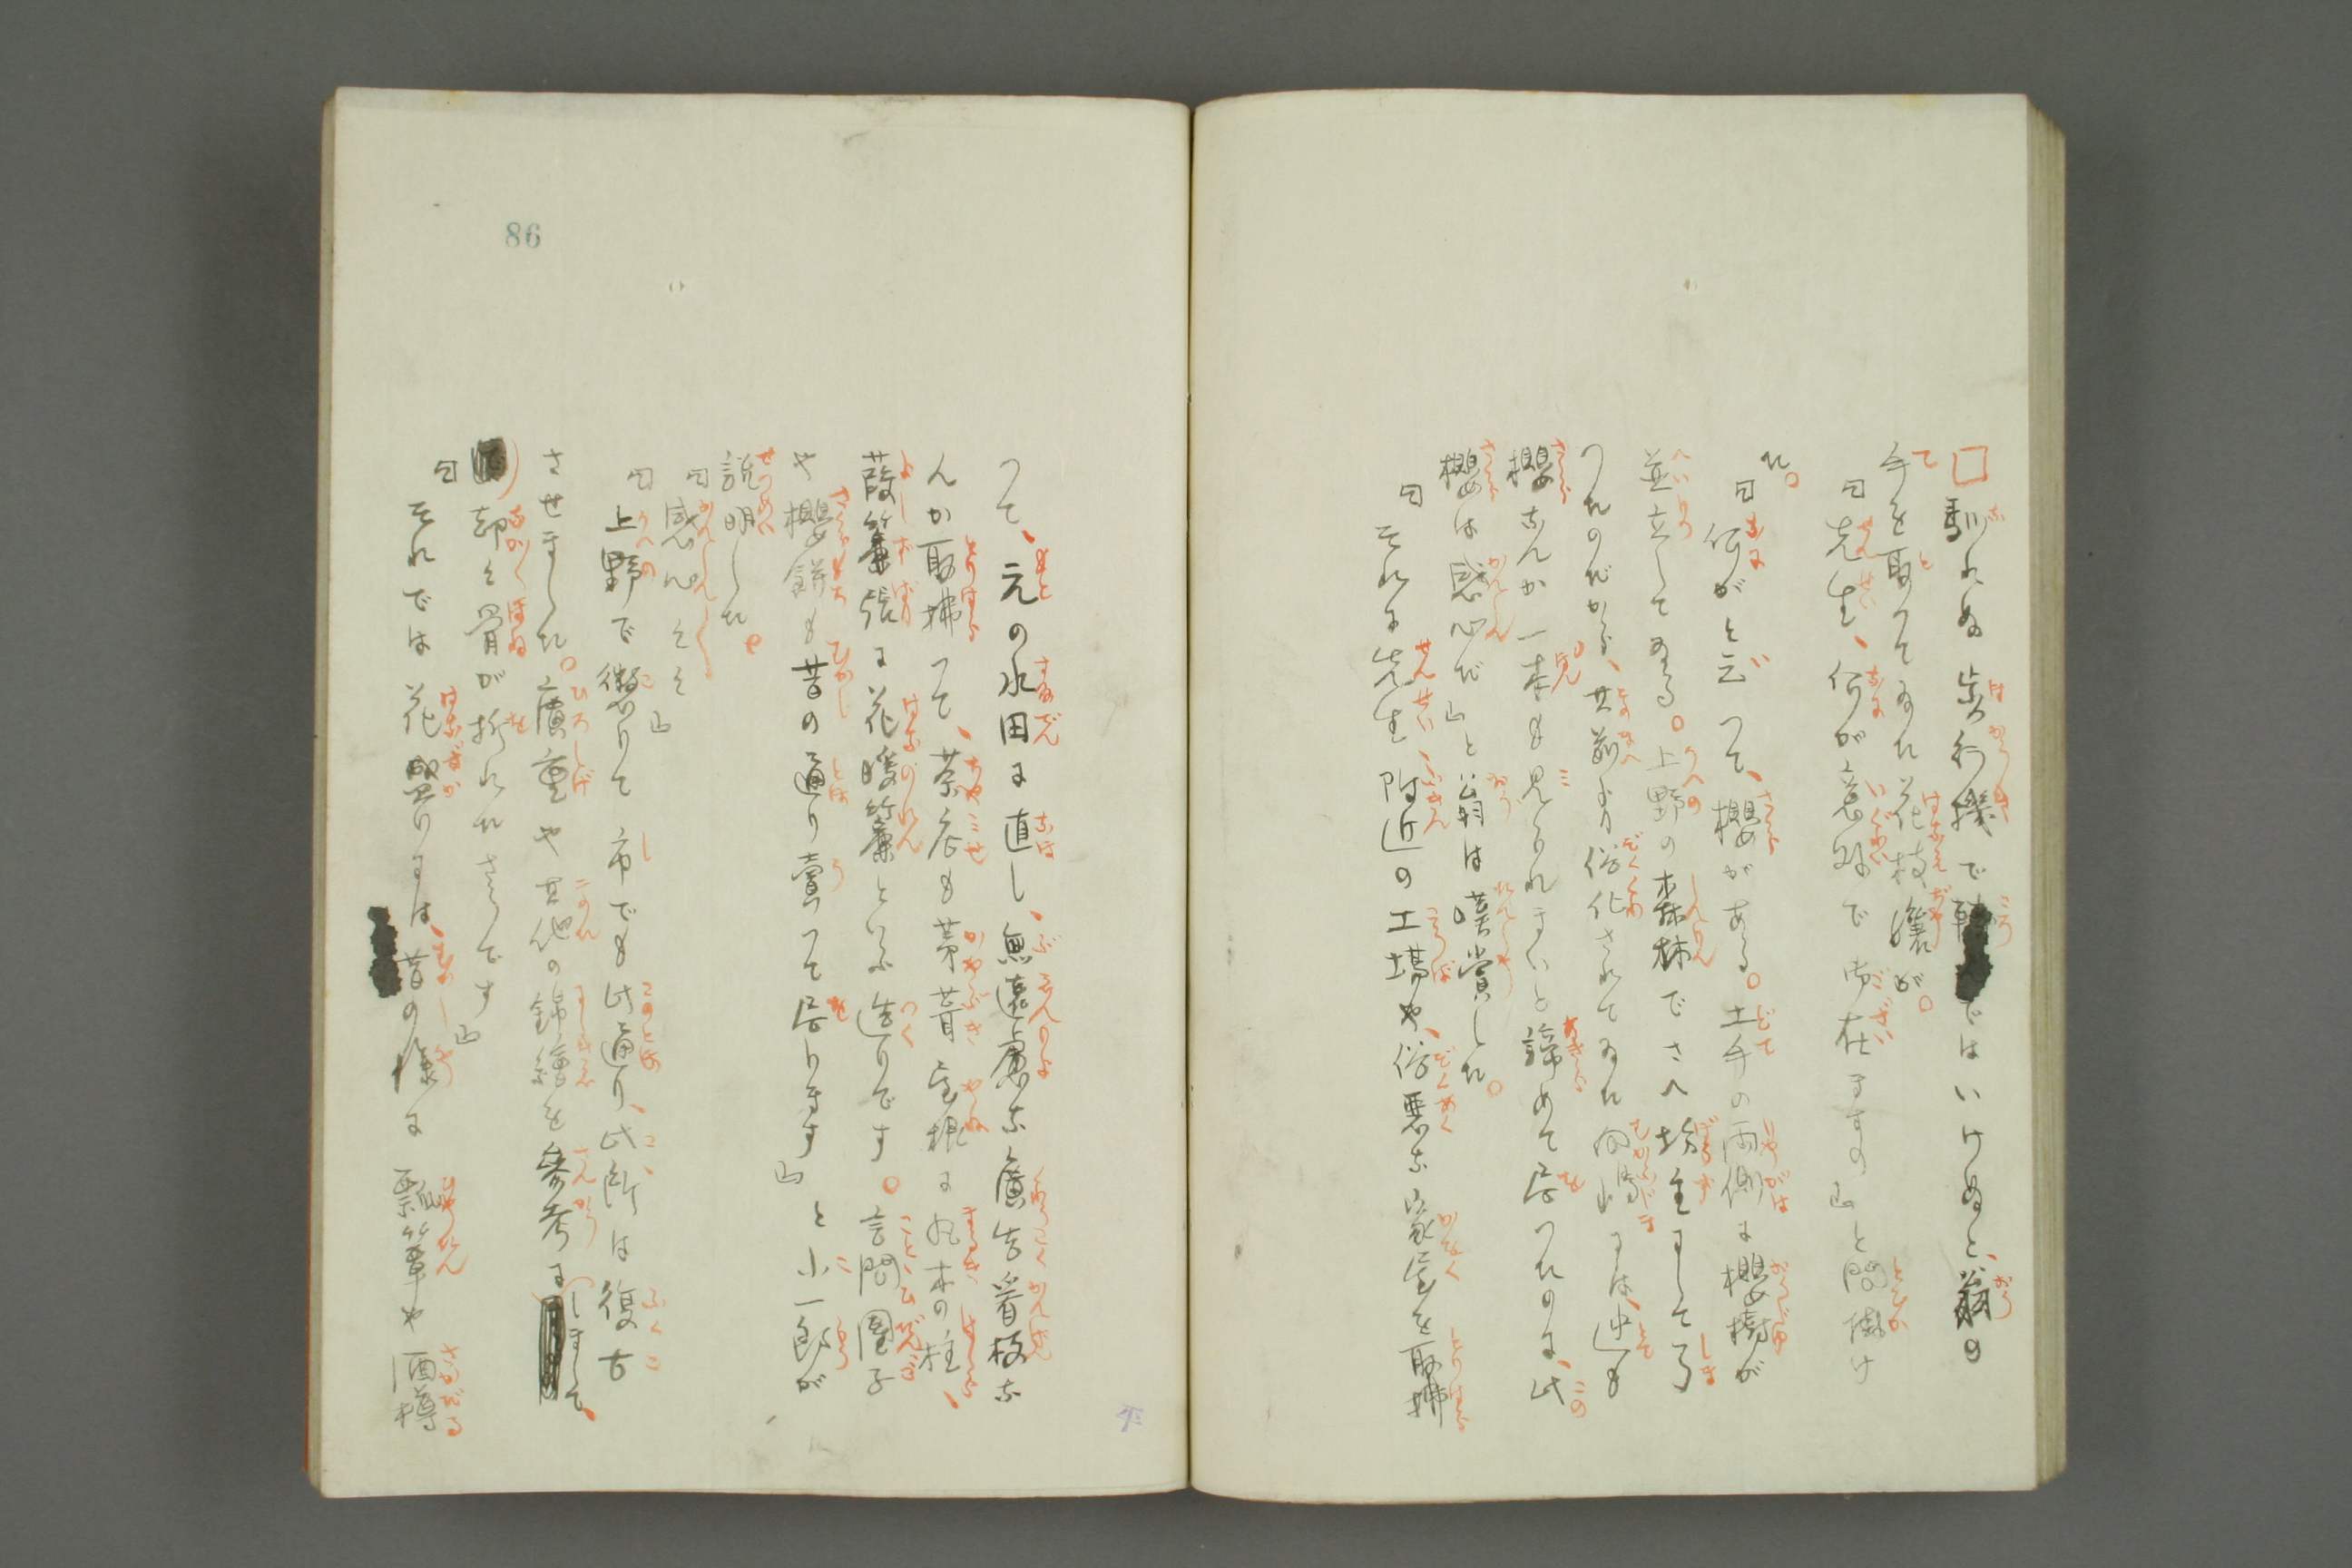 馴れぬ歩行機で轉ではいけぬと、翁の
手を取つてゐた花枝孃が。
「先生、何が意外で御在ますの」と問掛け
た。
「何がと云つて、櫻がある。土手の兩側に櫻樹が
並立してゐる。上野の森林でさへ坊主にして了
つたのだから、其前より俗化されてゐた向島には、迚も
櫻なんか一本も見られまいと諦めて居つたのに、此
櫻は感心だ」と翁は嘆賞した。
「それに先生、附近の工場や、俗惡な家屋を取拂
つて、元の水田に直し、無遠慮な廣告看板な
んか取拂つて、茶店も茅葺屋根に丸木の柱、
葭簾張に花暖簾といふ造りです。言問團子
や櫻餅も昔の通り賣つて居ります」と小一郎が
説明した。
「感心々々」
「上野で懲りて市でも此通り、此所は復古
させました。廣重や其他の錦繪を參考にしまして、
却々骨が折れたさうです」
「それでは花盛りには、昔の樣に瓢箪や酒樽
86